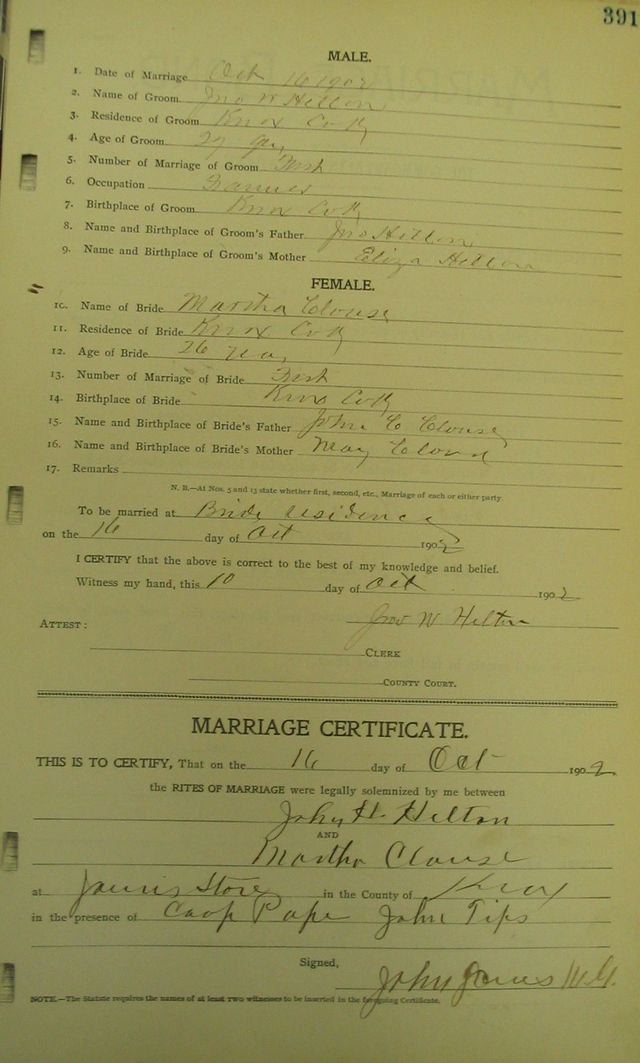 391
MALE.
1. Date of Marriage Oct 16 1902
2. Name of Groom Jno W Hilton
3. Residence of Groom Knox Co Ky
4. Age of Groom 27 yrs
5. Number of Marriage of Groom First
6. Occupation Farmer
7. Birthplace of Groom Knox Co Ky
8. Name and Birthplace of Groom's Father Jno Hilton
9. Name and Birthplace of Groom's Mother Eliza Hilton
FEMALE.
10. Name of Bride Martha Clouse
11. Residence of Bride Knox Co Ky
12. Age of Bride 26 years
13. Number of Marriage of Bride First
14. Birthplace of Bride Knox Co Ky
15. Name and Birthplace of Bride's Father John C Clouse
16. Name and Birthplace of Bride's Mother May Clouse
17. Remarks
N. B.—At Nos. 5 and 13 state whether first, second, etc., Marriage of each or either party
To be married at Bride residence
on the 16 day of Oct 1902
I CERTIFY that the above is correct to the best of my knowledge and belief.
Witness my hand, this 10 day of Oct 1902
Jno W Hilton
ATTEST:
CLERK
COUNTY COURT.
MARRIAGE CERTIFICATE.
THIS IS TO CERTIFY, That on the 16 day of Oct 1902
the RITES OF MARRIAGE were legally solemnized by me between
John H Hilton
AND
Martha Clouse
at Store in the County of Knox
in the presence of Pope John Tips
Signed,
John Jones M.G.
NOTE.—The Statute requires the names of at least two witnesses to be inserted in the foregoing Certificate.